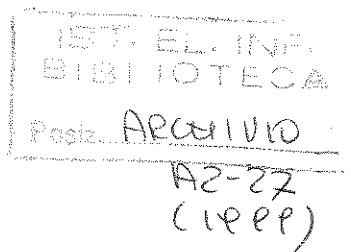 IST. EL. INF.
BIBLIOTECA
Posiz. ARCHIVIO
A2-27
(1999)